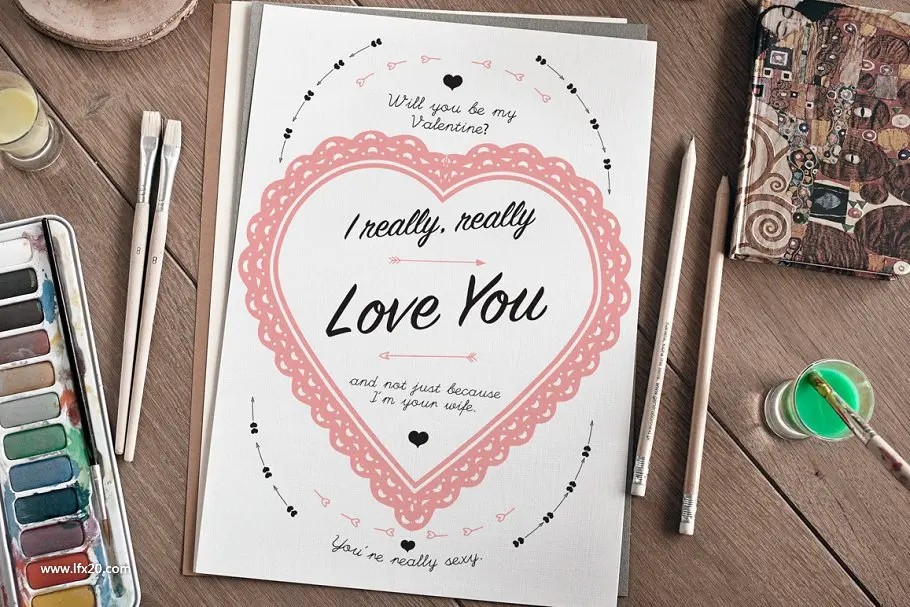 Will you be my
Valentine?
I really, really
Love You
and not just because
I'm your wife.
You're really sexy.
8
8
www.lfx20.com